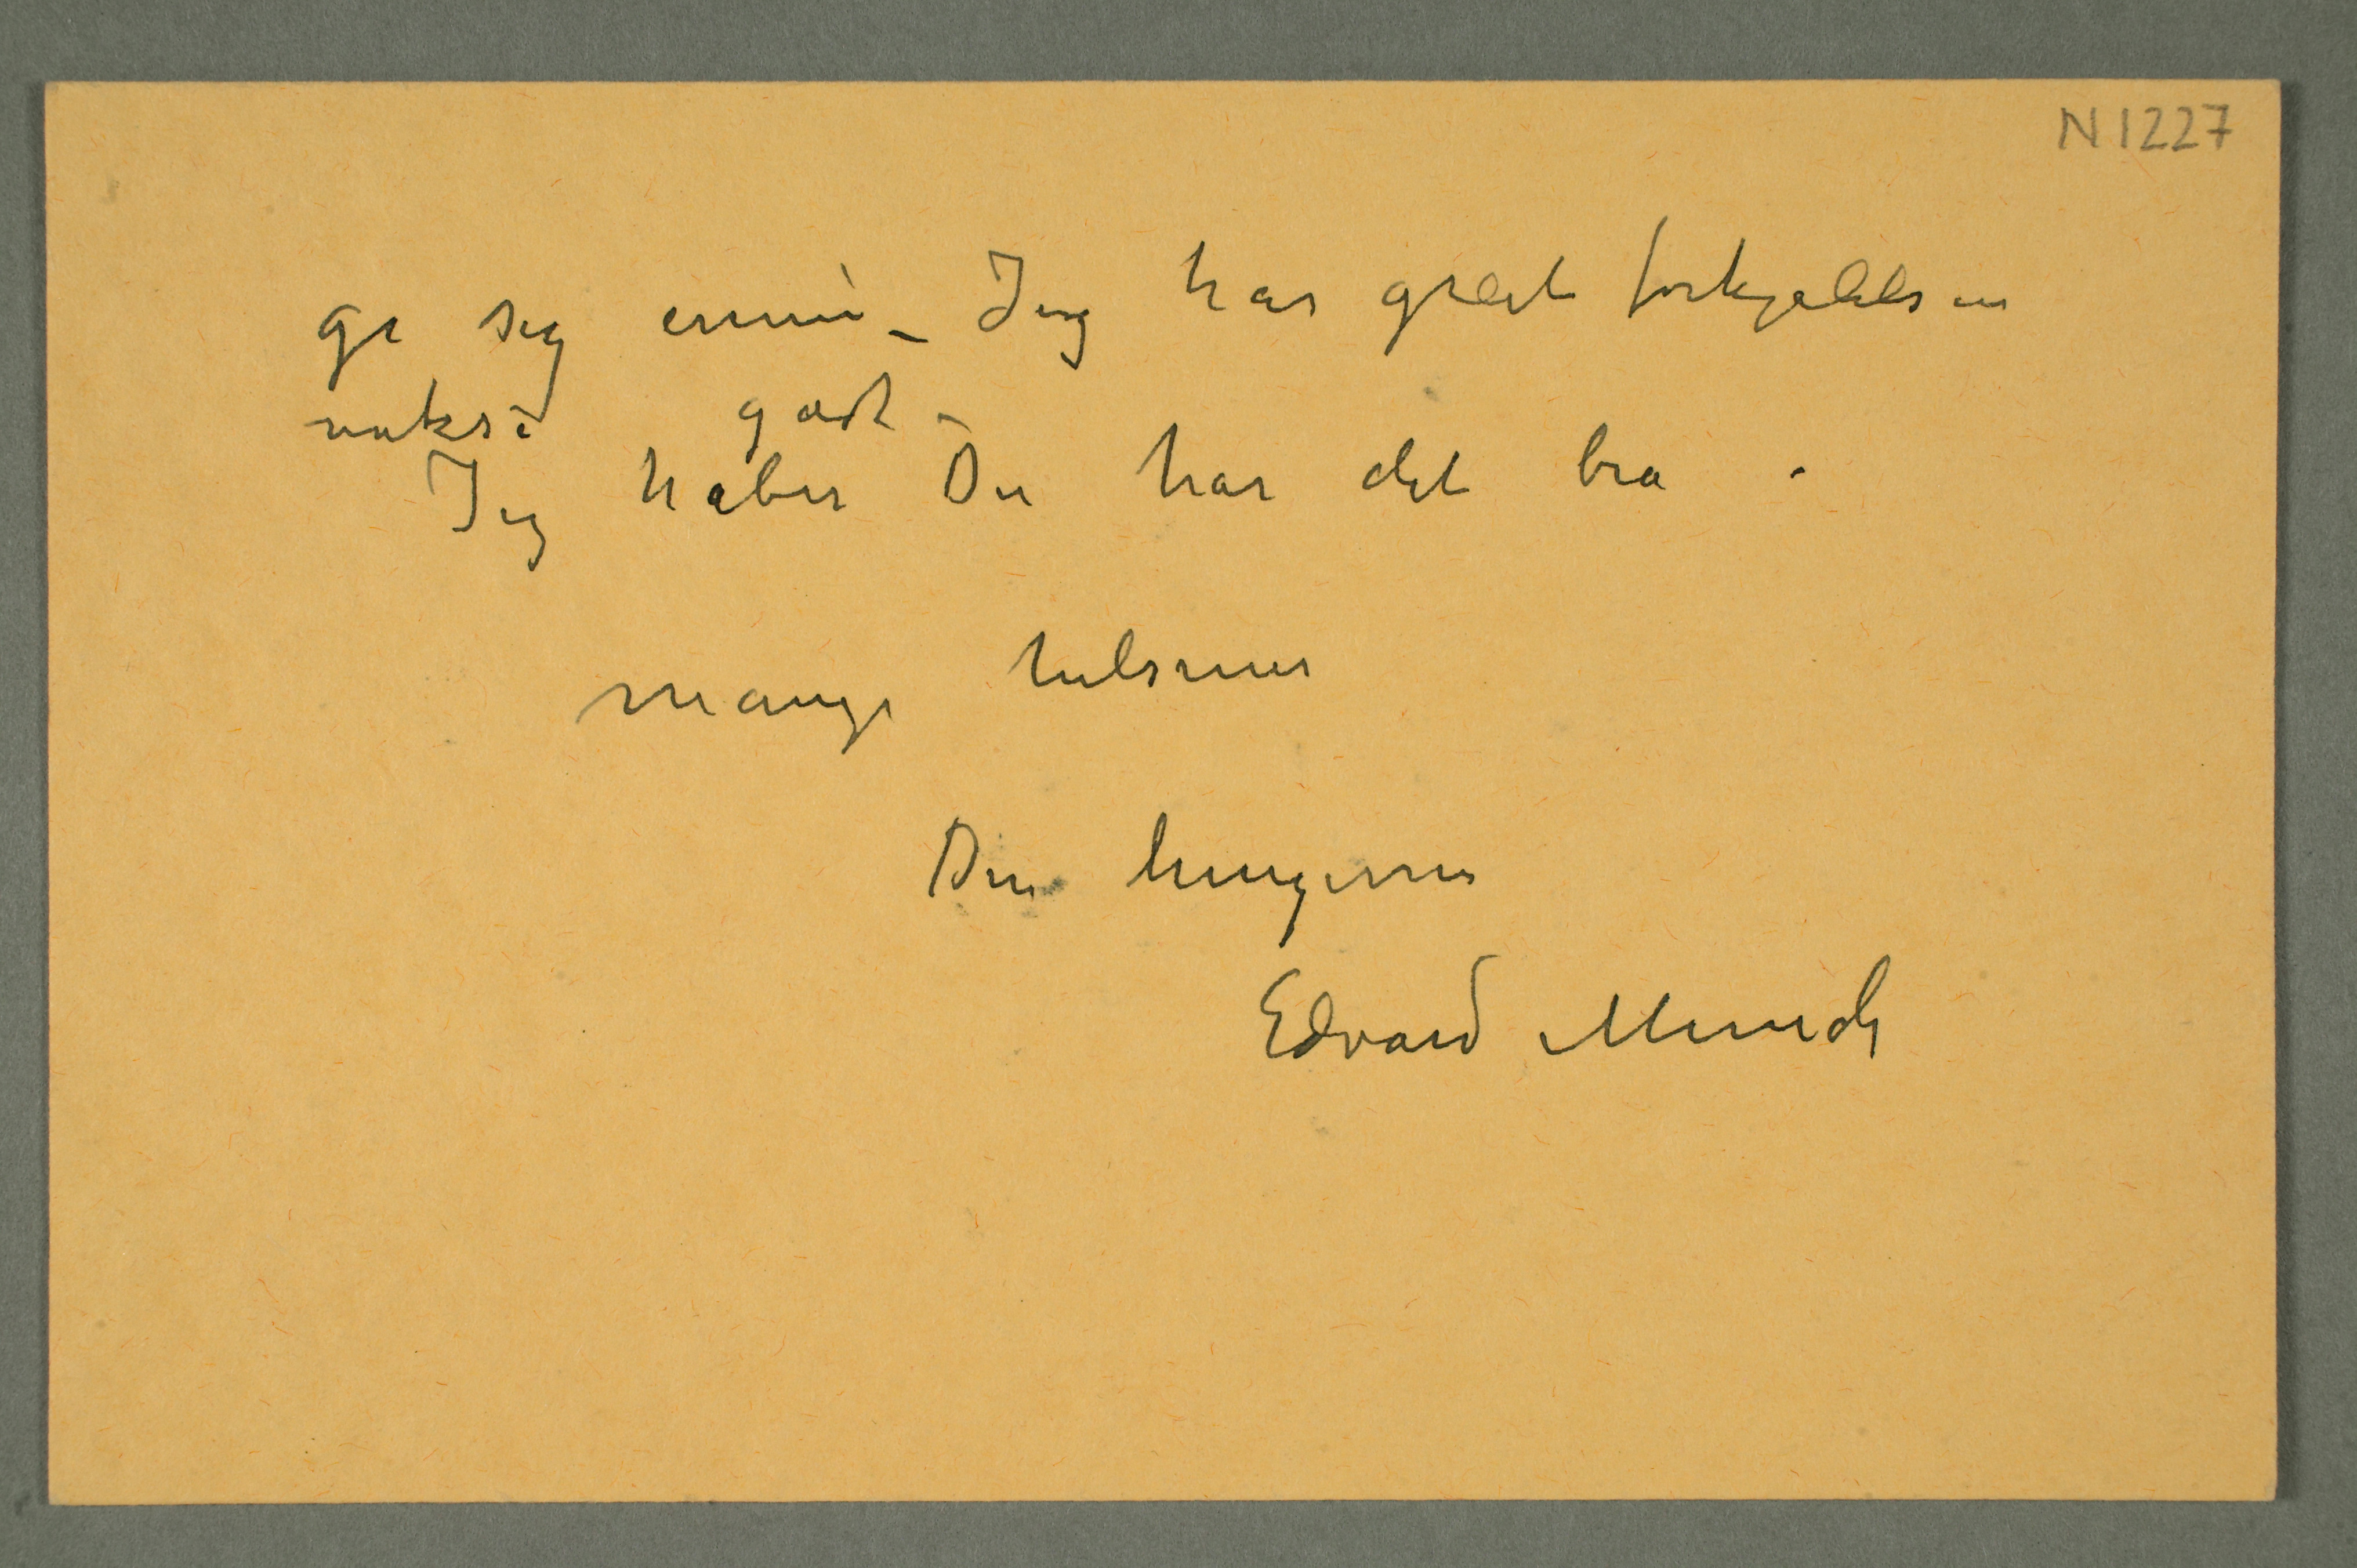 N 1227
ge sig ennu – Jeg har greiet forkjølelsen
nokså godt –
Jeg håber Du har det bra .
mange hilsener
Din hengivne
Edvard Munch